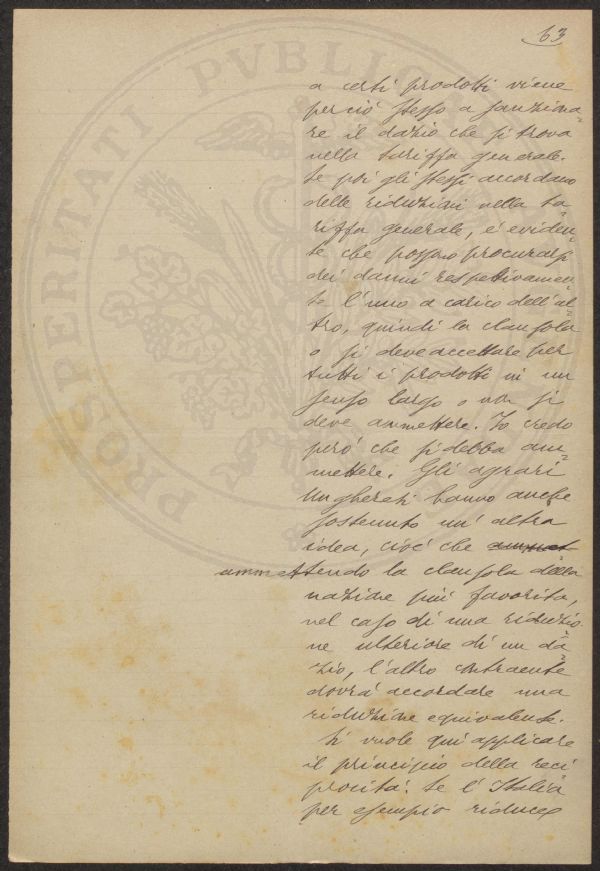 63
PROSPERITATI PVBLIC
a certi prodotti viene
perciò stesso a sanziona=
re il dazio che si trova
nella tariffa generale.
Se poi gli stessi accordano
delle riduzioni nella ta=
riffa generale, è eviden=
te che possono procurarsi
dei danni respettivamen=
te l'uno a carico dell'al=
tro, quindi la clausola
o si deve accettare per
tutti i prodotti in un
senso largo o non si
deve ammettere. Io credo
però che si debba am=
mettere. Gli agrari
Ungheresi hanno anche
sostenuto un' altra
idea, cioè che ammet
ammettendo la clausola della
nazione più favorita,
nel caso di una riduzio
ne ulteriore di un da=
zio, l'altro contraente
dovrà accordare una
riduzione equivalente.
Si vuole qui applicare
il principio della reci
procità. Se l'Italia
per esempio riduce